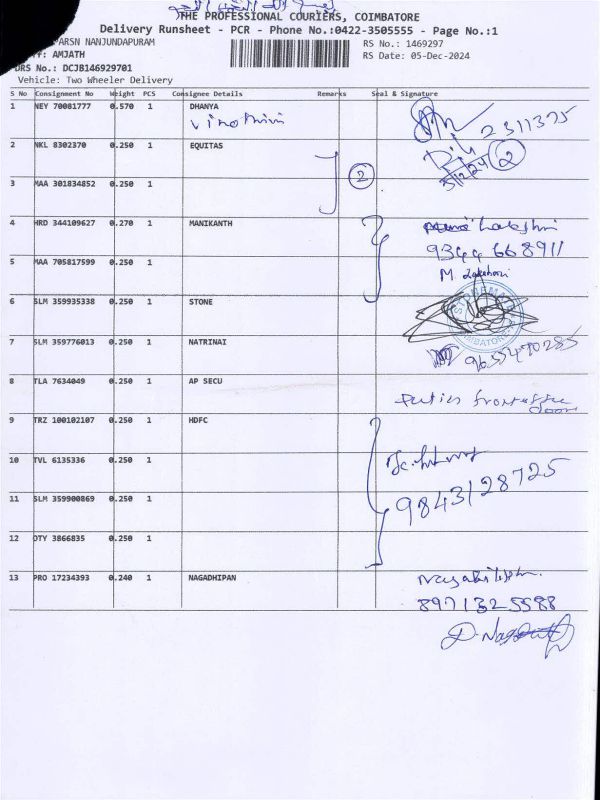 THE PROFESSIONAL COURIERS, COIMBATORE
Delivery Runsheet - PCR - Phone No.:0422-3505555 - Page No.:1
PARSN NANJUNDAPURAM
RS No.: 1469297
: AMJATH
RS Date: 05-Dec-2024
DRS No.: DCJB146929701
Vehicle: Two Wheeler Delivery
S No Consignment No Weight PCS Consignee Details Remarks Seal & Signature
1 NEY 70081777 0.570 1 DHANYA
Vinothini
2311375
2 NKL 8302370 0.250 1 EQUITAS
2
5/12/24
2
3 MAA 301834852 0.250 1
4 HRD 344109627 0.270 1 MANIKANTH
9344668911
5 MAA 705817599 0.250 1
M.
6 SLM 359935338 0.250 1 STONE
7 SLM 359776013 0.250 1 NATRINAI
8 TLA 7634049 0.250 1 AP SECU
door
9 TRZ 100102107 0.250 1 HDFC
10 TVL 6135336 0.250 1
9843128725
11 SLM 359900869 0.250 1
12 OTY 3866835 0.250 1
13 PRO 17234393 0.240 1 NAGADHIPAN
8971325588